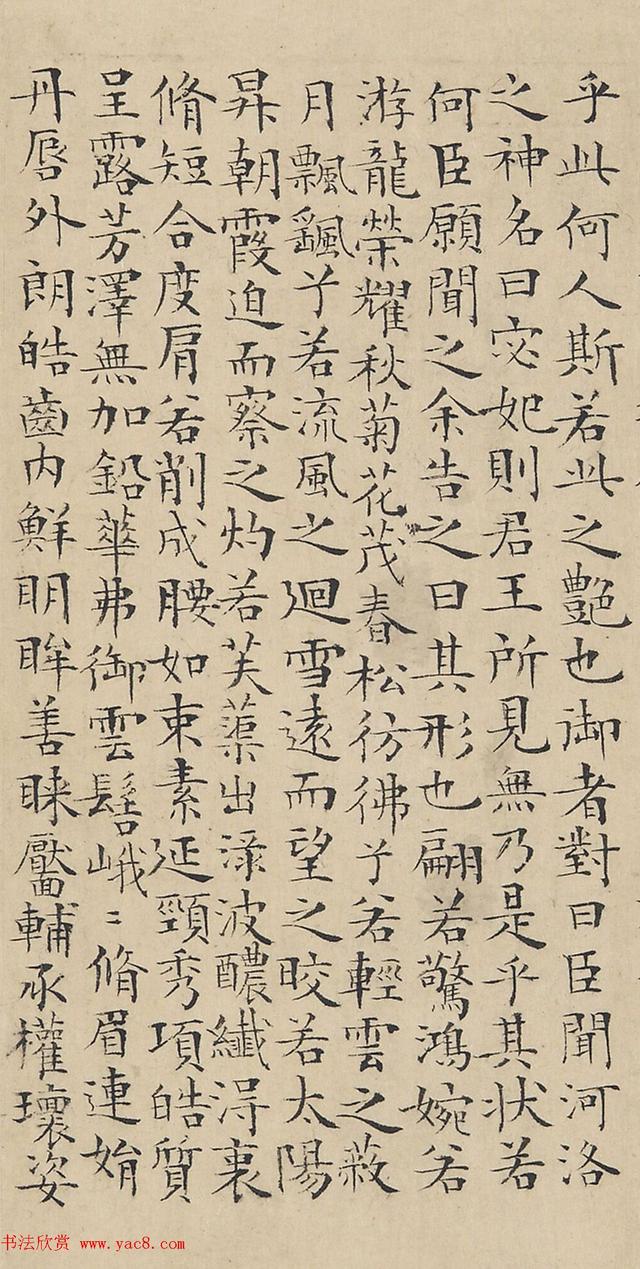 乎此何人斯若此之艷也御者對曰臣聞河洛
之神名曰宓妃則君王所見無乃是乎其状若
何臣願聞之余告之曰其形也翩若驚鴻婉若
游龍榮耀秋菊花茂春松彷彿兮若輕雲之蔽
月飄颻兮若流風之迴雪遠而望之晈若太陽
昇朝霞迫而察之灼若芙蕖出渌波醲纖得衷
脩短合度肩若削成腰如束素延頸秀項皓質
呈露芳澤無加鉛華弗御雲髻峨〻脩眉連娟
丹唇外朗皓齒内鮮明眸善睞靨輔承權瓌姿
书法欣赏 www.yac8.com